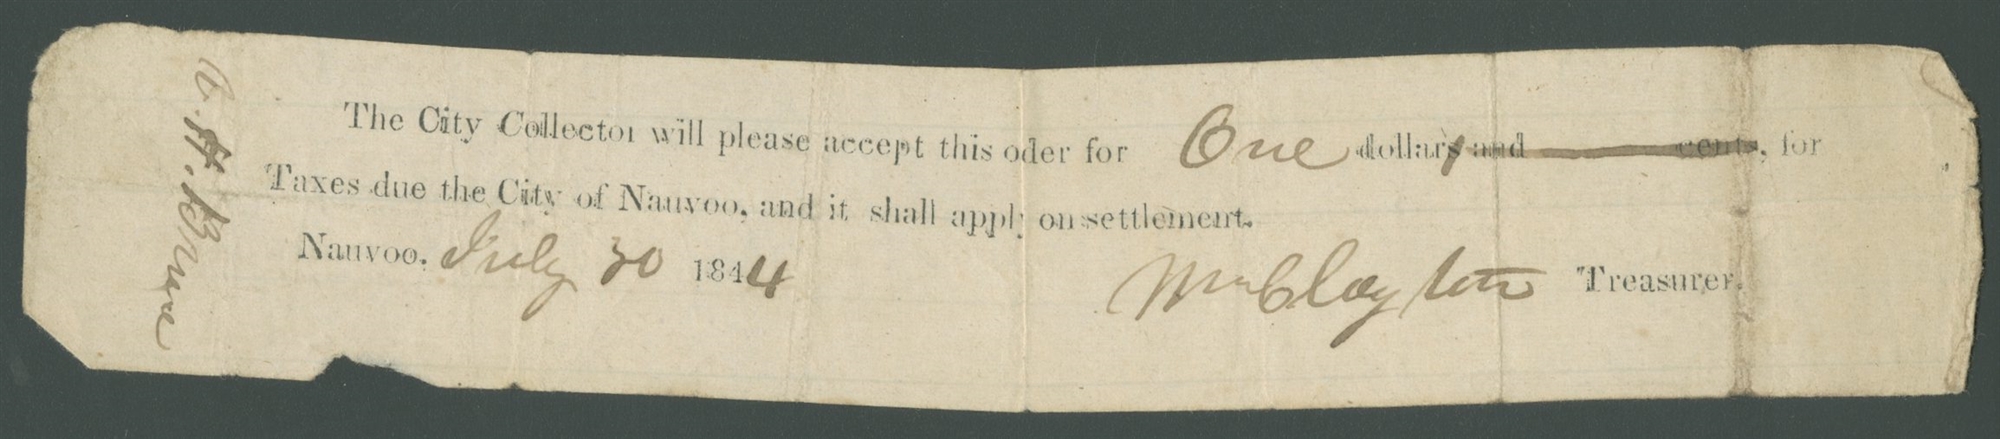 The City Collector will please accept this oder for One dollars and cents, for
Taxes due the City of Nauvoo, and it shall apply on settlement.
Nauvoo. July 30 1844 Wm Clayton Treasurer.